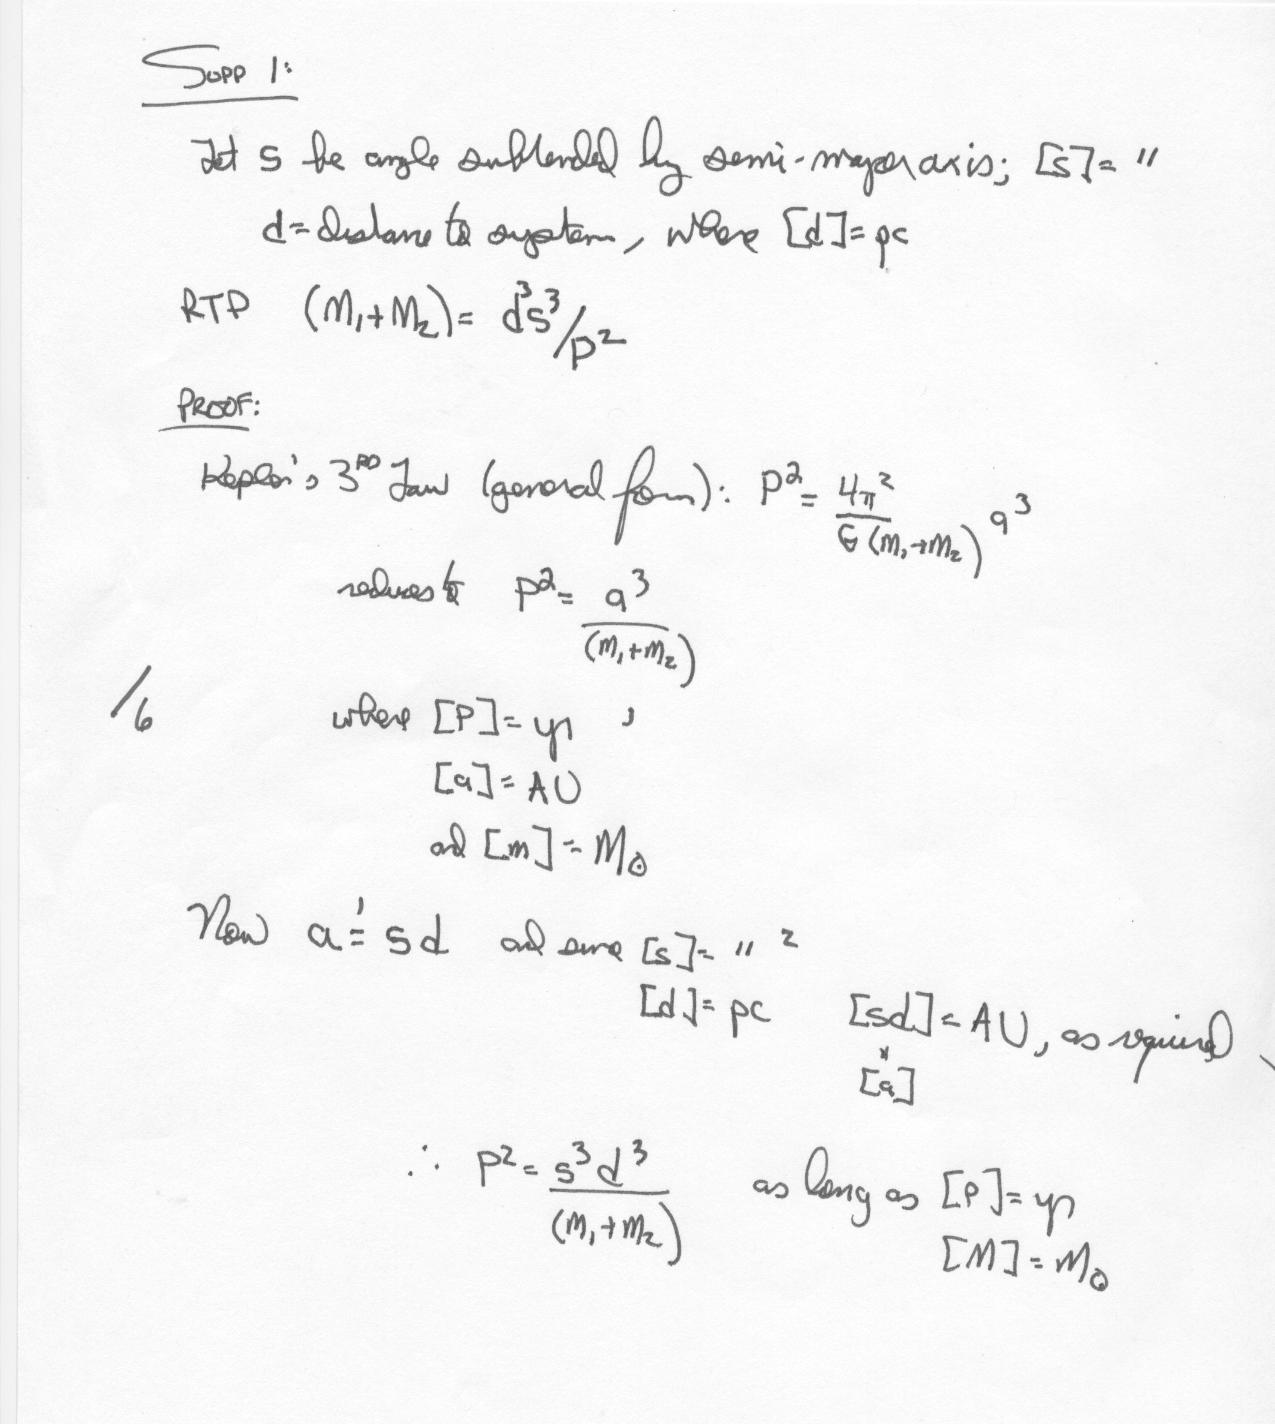 SUPP 1:
Let s be angle subtended by semi-major axis; [s]= "
d= distance to system, where [d]= pc
RTP (M₁+M₂)= d³s³/p²
PROOF:
Kepler's 3RD Law (general form): P²= 4π²/G(m₁+m₂) a³
reduces to P²= a³/(m₁+m₂)
/6 where [P]= yr 1
[a]= AU
and [m]= M☉
Now a = sd 1 and since [s]= " 2
[d]= pc [sd]= AU, as required
[a]
∴ P²= s³d³/(m₁+m₂) as long as [P]= yr
[M]= M☉